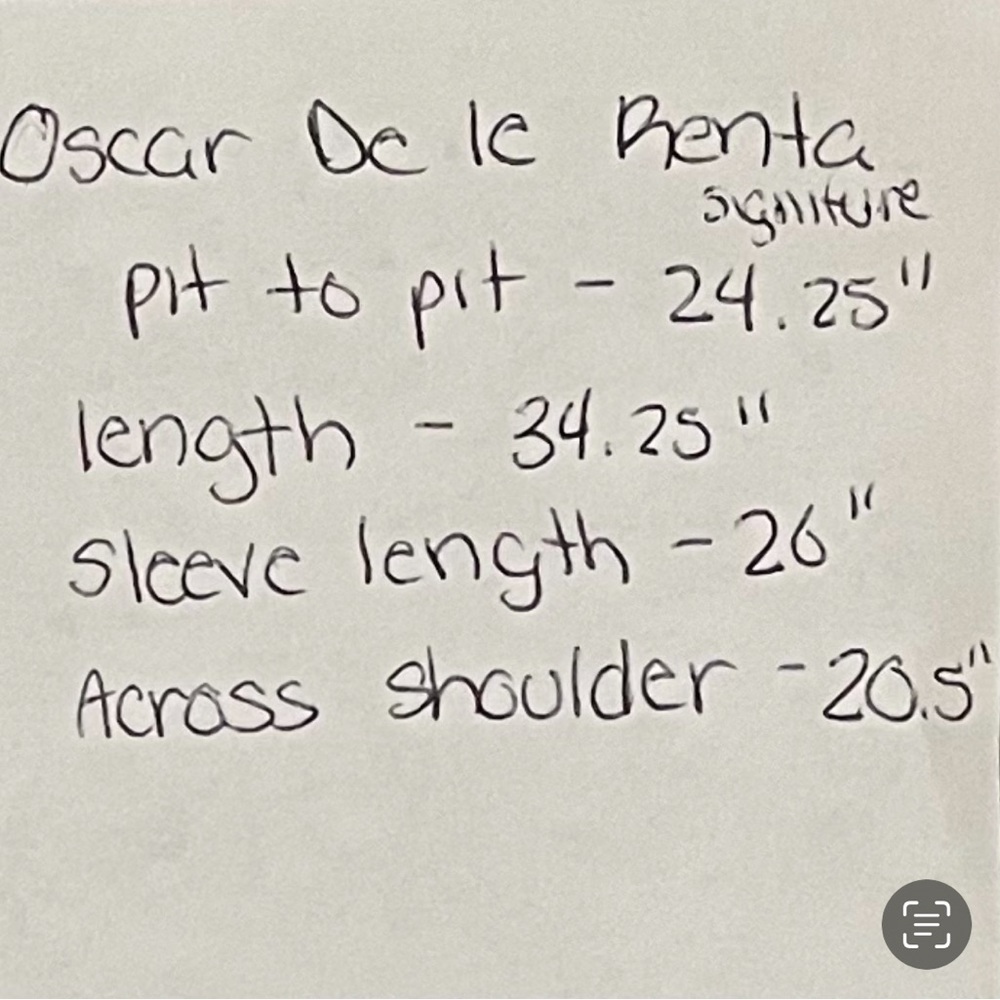 Oscar De le Renta
signiture
pit to pit - 24.25"
length - 34.25"
sleeve length - 26"
Across shoulder - 20.5"